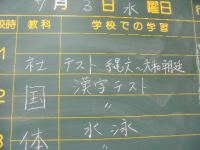 9月3日水曜日
校時 教科 学校での学習
1 社 テスト 縄文~大和朝廷
2 国 漢字テスト
〃
3 体 水泳
〃